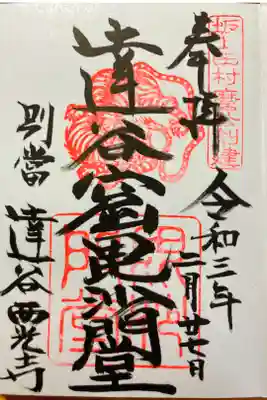 坂上田村麿公創建
奉拝
令和三年
二月廿七日
達谷窟毘沙門堂
別當 達谷西光寺